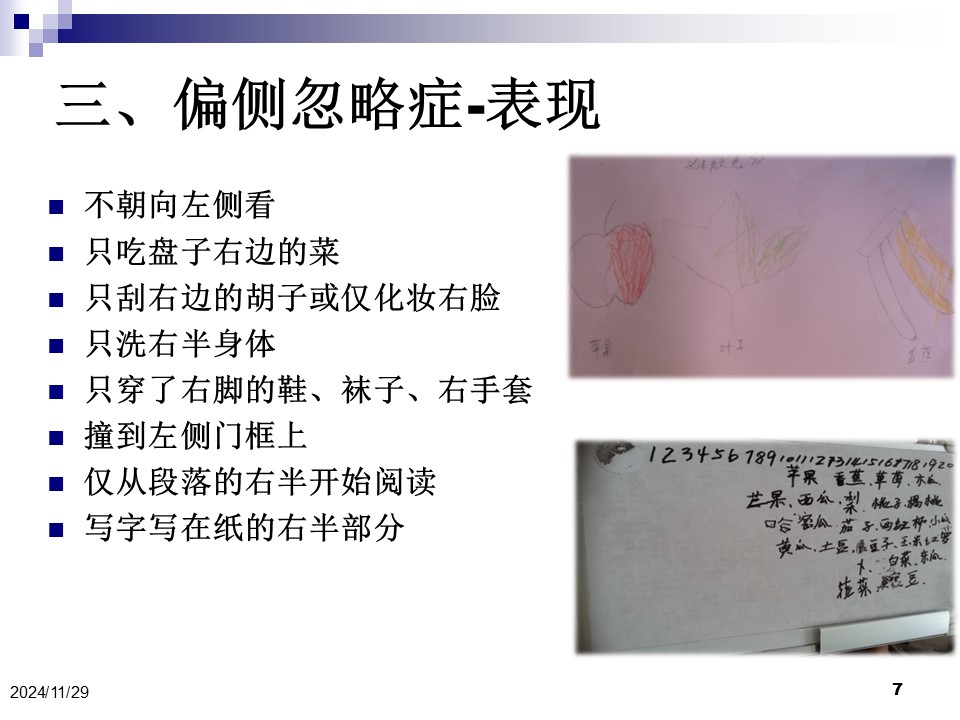 三、偏侧忽略症-表现
不朝向左侧看
只吃盘子右边的菜
只刮右边的胡子或仅化妆右脸
只洗右半身体
只穿了右脚的鞋、袜子、右手套
撞到左侧门框上
仅从段落的右半开始阅读
写字写在纸的右半部分
苹果 叶子 香蕉
1 2 3 4 5 6 7 8 9 10 11 12 13 14 15 16 17 18 19 20
苹果 香蕉、草莓、木瓜
芒果、西瓜、梨、桃子、
哈密瓜 茄子、西红柿、小瓜
黄瓜、土豆、豆子、玉米、红萝
卜、白菜、东瓜
菜 豌豆.
2024/11/29
7